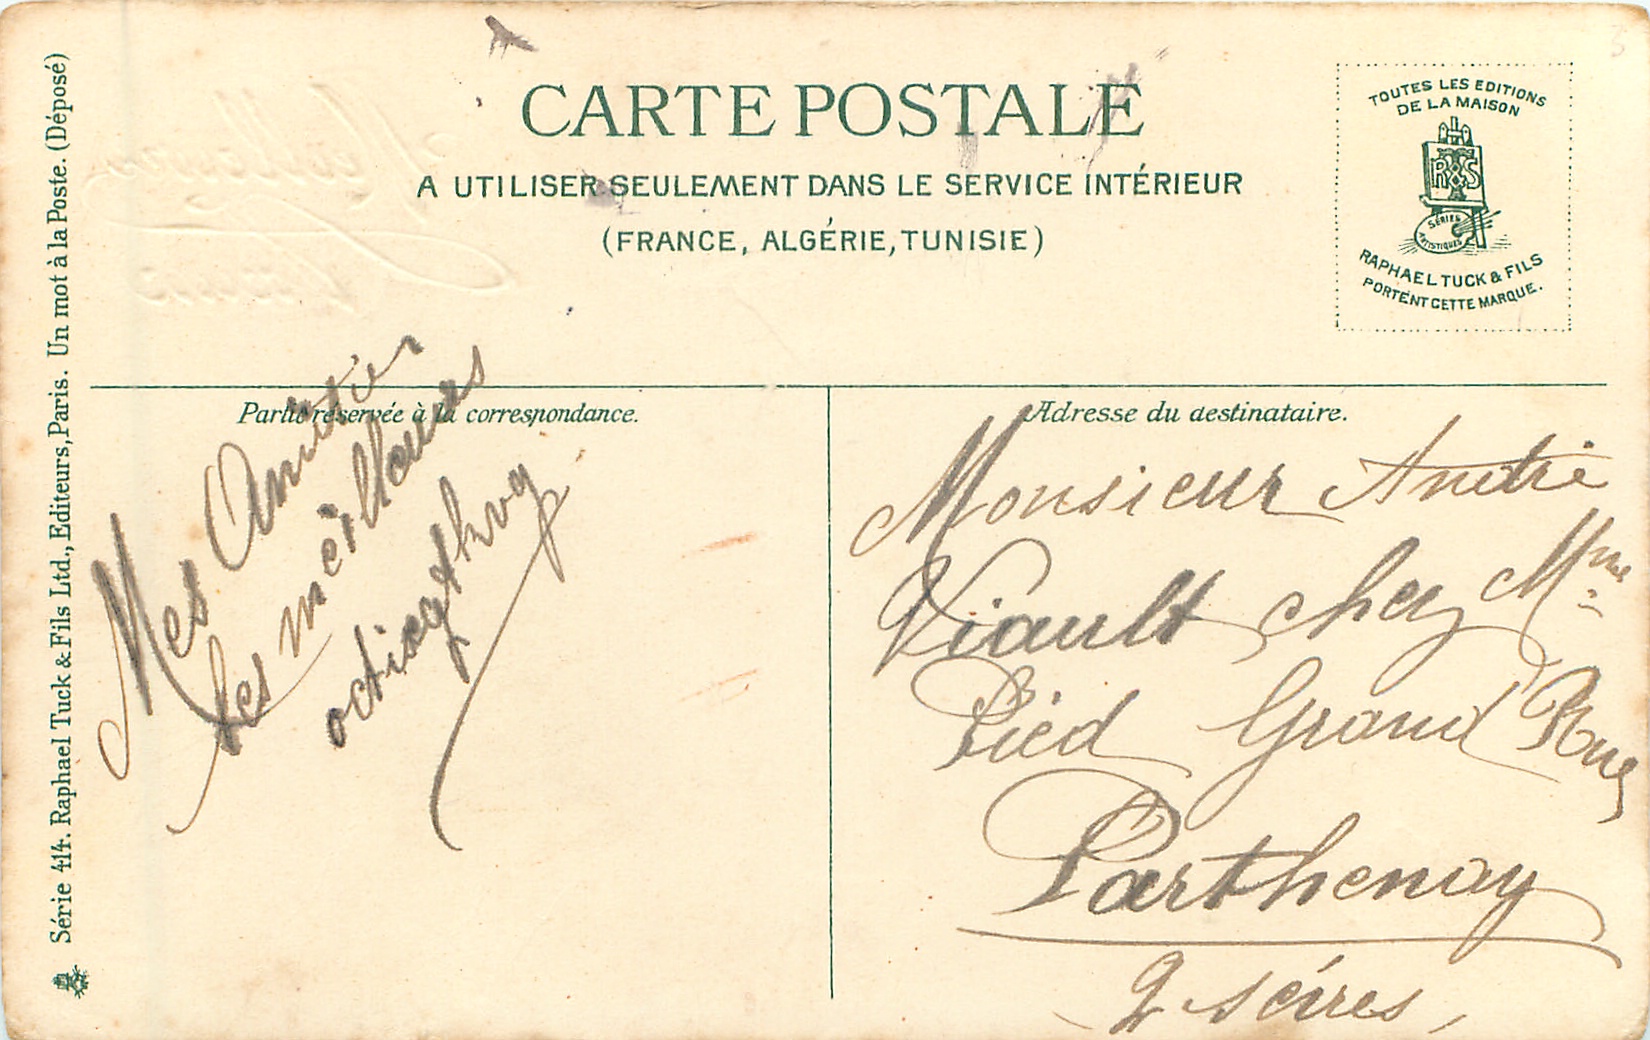 CARTE POSTALE
A UTILISER SEULEMENT DANS LE SERVICE INTÉRIEUR
(FRANCE, ALGÉRIE, TUNISIE)
TOUTES LES EDITIONS
DE LA MAISON
RT&S
SÉRIES
ARTISTIQUES
RAPHAEL TUCK & FILS
PORTENT CETTE MARQUE.
Série 414. Raphael Tuck & Fils Ltd., Editeurs, Paris. Un mot à la Poste. (Déposé)
Partie réservée à la correspondance.
Mes Amitiés
les meilleures
Adresse du destinataire.
Monsieur André
Viault chez Mme
Pied Grand Rue
Parthenay
2 sèvres